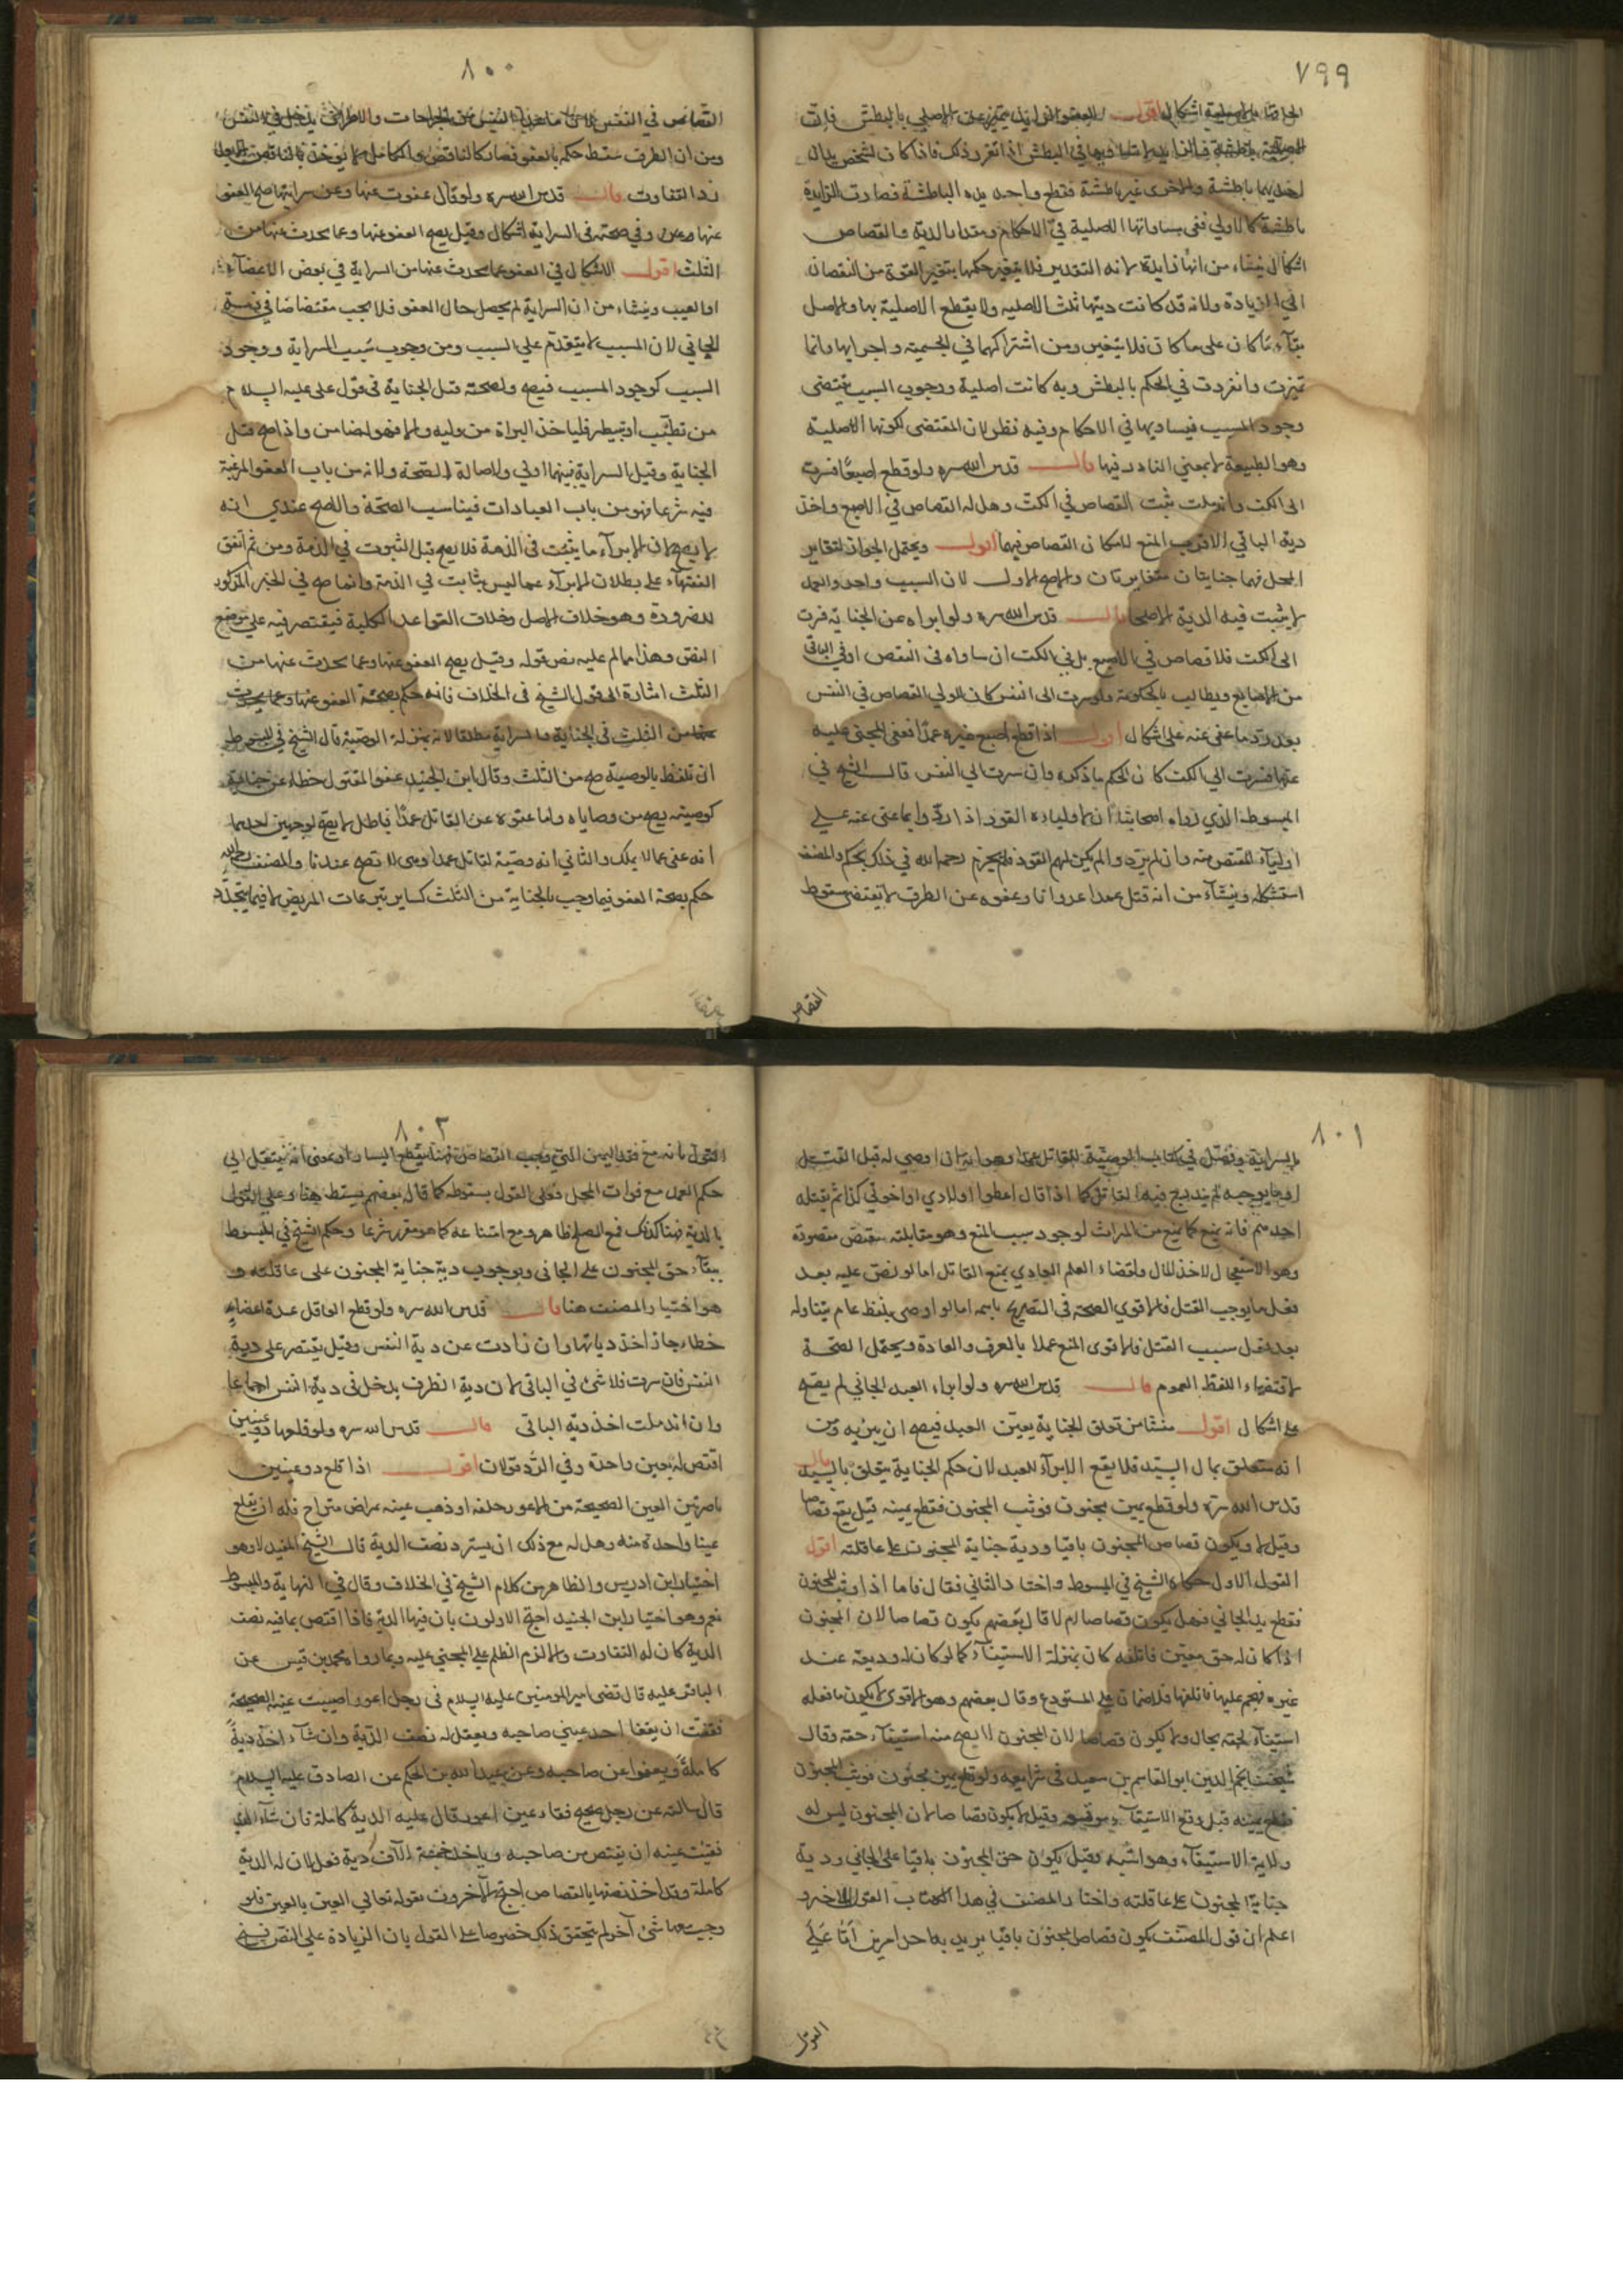 ٧٩٩
اشكال اقول العضو الزايد يتميز عن الاصلي بالبطش فان
فاذا كان لشخص يدان
احديهما باطشة والاخرى غير باطشة فقطع واحد يده الباطشة فصارت الزايدة
باطشة كالاولى ففي مساواتها الاصلية في الاحكام ومقدار الدية والقصاص
اشكال ينشاء من انها زايدة لانه التقدير فلا يتغير حكمها بتغير القوة من النقصان
الى الزيادة ولانه قد كانت ديتها ثلث الاصليه ولا يقطع الاصلية بها والاصل
بقاء ما كان على ما كان فلا يتغير ومن اشتراكهما في الجسمية واجزايها وانما
تميزت وانفردت في الحكم بالبطش وبه كانت اصلية ووجود السبب يقتضى
وجود المسبب فيساويها في الاحكام وفيه نظر لان المقتضى لكونها الاصلية
وهو الطبيعة لا بمعنى النادر فيها قال قدس الله سره ولو قطع اصبعا فسرت
الى الكف واندملت ثبت القصاص في الكف وهل له القصاص في الاصبع واخذ
دية الباقي الاقرب المنع لامكان القصاص فيهما اقول ويحتمل الجواز لتغاير
المحل فهما جنايتان متغايرتان والاصح الاول لان السبب واحد والعمد
لا يثبت فيه الدية الا صلحا قال قدس الله سره ولو ابراه عن الجناية فسرت
الى الكف فلا قصاص في الاصبع بل في الكف ان ساواه في النقص او في الباقي
من الاصابع ويطالب بالحكومة ولو سرت الى النفس كان للولي القصاص في النفس
بعد رد ما عفى عنه على اشكال اقول اذا قطع اصبع غيره عمدا فعفى المجنى عليه
عنها فسرت الى الكف كان الحكم ما ذكره وان سرت الى النفس قال الشيخ في
المبسوط الذي رواه اصحابنا ان لاولياءه القود اذا ردوا ما عفى عنه على
اولياء المقتص منه وان لم يرد والم يكن لهم القود فلم يجزم رحمه الله في ذلك بحكم والمصنف
استشكله وينشاء من انه قتل عمدا عدوانا وعفوه عن الطرف لا يقتضى سقوط
القصاص
٨٠٠
القصاص في النفس
ومن ان الطرف سقط حكمه بالعفو فصار كالناقص والكامل لا يوخذ بالناقص
رد التفاوت قال قدس الله سره ولو قال عفوت عنها وعن سرايتها صح العفو
عنها وفي صحته في السراية اشكال وقيل يصح العفو عنها وعما يحدث عنها من
الثلث اقول الاشكال في العفو عما يحدث عنها من السراية في بعض الاعضاء
او العيب وينشاء من ان السراية لم يحصل حال العفو فلا يجب مقتضاها في ذمة
الجاني لان المسبب لا يتقدم على السبب ومن وجوب سبب السراية ووجود
السبب كوجود المسبب فيصح ولصحته قبل الجناية في قول على عليه السلام
من تطبب او تبيطر فلياخذ البراة من وليه والا فهو ضامن واذا صح قبل
الجناية وقبل السراية فبينهما اولى والاصالة الصحة ولانه من باب العفو المرغبة
فيه شرعا فهو من باب العبادات فيناسب الصحة والاصح عندي انه
لا يصح لان الابراء ما يثبت في الذمة فلا يصح قبل الثبوت في الذمة ومن ثم اتفق
الفقهاء على بطلان الابراء عما ليس بثابت في الذمة وانما صح في الخبر المذكور
للضرورة وهو خلاف الاصل وخلاف القواعد الكلية فيقتصر فيه على موضع
النص وهذا مما لم عليه نص قوله وقيل يصح العفو عنها وعما يحدث عنها من
الثلث اشارة الى قول الشيخ في الخلاف فانه حكم بصحة العفو عنها وعما يحدث
عنها من الثلث في الجناية والسراية مطلقا لانه بمنزلة الوصية قال الشيخ في المبسوط
ان تلفظ بالوصية صح من الثلث وقال ابن الجنيد عفو المقتول خطا عن جنايته
كوصيته يصح من وصاياه واما عفوه عن القاتل عمدا فباطل لا يصح لوجهين احدهما
انه عفى عما لا يملك والثاني انه وصية لقاتل عمدا وهي لا تصح عندنا والمصنف رحمه الله
حكم بصحة العفو فيما وجب بالجناية من الثلث كساير تبرعات المريض لا فيما يتجدد
٨٠١
بالسراية وفصل في كتاب الوصية للقاتل عمدا وهو انه ان اوصى له قبل القتل
او ما يوجبه لم يندرج فيه القاتل كما اذا قال اعطوا اولادي او اخوتي كذا ثم يقتله
احد منهم فانه يمنع كما يمنع من الميراث لوجود سبب المنع وهو مقابلته بنقيض مقصوده
وهو الاستعجال لاخذ المال واقتضاء العلم العادي بمنع القاتل اما لو نص عليه بعد
فعل ما يوجب القتل فالاقوى الصحة في التصريح باسمه اما لو اوصى بلفظ عام يتناوله
بعد فعل سبب القتل فالاقوى المنع عملا بالعرف والعادة ويحتمل الصحة
لاقتضاء اللفظ العموم قال قدس الله سره ولو ابراء العبد الجاني لم يصح
على اشكال اقول منشا من تعلق الجناية بعين العبد فيصح ان يبريه ومن
انه متعلق بمال السيد فلا يقع الابراء للعبد لان حكم الجناية يتعلق بالسيد قال
قدس الله سره ولو قطع يمين مجنون فوثب المجنون فقطع يمينه قيل يقع قصاصا
وقيل لا ويكون قصاص المجنون باقيا ودية جناية المجنون على عاقلته اقول
القول الاول حكاه الشيخ في المبسوط واختار الثاني فقال فاما اذا وثب المجنون
فقطع يد الجاني فهل يكون قصاصا ام لا قال بعضهم يكون قصاصا لان المجنون
اذا كان له حق معين فاتلفه كان بمنزلة الاستيفاء كما لو كان له وديعة عند
غيره فهجم عليها فاتلفها فلا ضمان على المستودع وقال بعضهم وهو الاقوى لا يكون ما فعله
استيفاء لحقه بحال ولا يكون قصاصا لان المجنون لا يصح منه استيفاء حقه وقال
شيخنا نجم الدين ابو القاسم بن سعيد في شرايعه ولو قطع يمين مجنون فوثب المجنون
فقطع يمينه قبل وقع الاستيفاء موقعه وقيل لا يكون قصاصا لان المجنون ليس له
ولاية الاستيفاء وهو اشبه وقيل يكون حق المجنون باقيا على الجاني ودية
جناية المجنون على عاقلته واختار المصنف في هذا الكتاب القول الاخير و
اعلم ان قول المصنف يكون قصاص المجنون باقيا يريد به احد امرين اما على
القول
٨٠٢
القول بانه مع فقد اليمين
حكم العمد مع فوات المحل فعلى القول بسقوطه كما قال بعضهم يسقط هنا وعلى القول
بالدية فهنا كذلك فمع الصلح ظاهر ومع امتناعه كما هو مقرر شرعا وحكم الشيخ في المبسوط
ببقاء حق المجنون على الجاني وبوجوب دية جناية المجنون على عاقلته و
هو اختيار المصنف هنا قال قدس الله سره ولو قطع العاقل عدة اعضاء
خطاء جاز اخذ دياتها وان زادت عن دية النفس وقيل يقتصر على دية
النفس فان سرت فلا شئ في الباقي لان دية الطرف يدخل في دية النفس اجماعا
وان اندملت اخذ دية الباقي قال قدس الله سره ولو قلعها ذو عينين
اقتص له بعين واحدة وفي الرد قولان اقول اذا قلع ذو عينين
باصرتين العين الصحيحة من الاعور خلقة او ذهب عينه بمراض متراح فله ان يقلع
عينا واحدة منه وهل له مع ذلك ان يسترد نصف الدية قال الشيخ المفيد لا وهو
اختيار ابن ادريس والظاهر من كلام الشيخ في الخلاف وقال في النهاية والمبسوط
نعم وهو اختيار ابن الجنيد احتج الاولون بان فيها الدية فاذا اقتص بما فيه نصف
الدية كان له التفاوت والا لزم الظلم على المجنى عليه وبما رواه محمد بن قيس عن
الباقر عليه قال قضى امير المومنين عليه السلام في رجل اعور اصيبت عينه الصحيحة
ففقئت ان يفقا احد عيني صاحبه ويعقل له نصف الدية وان شاء اخذ دية
كاملة ويعفوا عن صاحبه وعن عبد الله بن الحكم عن الصادق عليه السلام
قال سالته عن رجل صحيح فقاء عين اعور فقال عليه الدية كاملة فان شاء الذي
فقئت عينه ان يقتص من صاحبه وياخذ خمسة الاف دية فعل لان له الدية
كاملة وقد اخذ نصفها بالقصاص احتج الاخرون بقوله تعالى العين بالعين فلو
وجب معها شئ آخر لم يتحقق ذلك خصوصا على القول بان الزيادة على النص نسخ